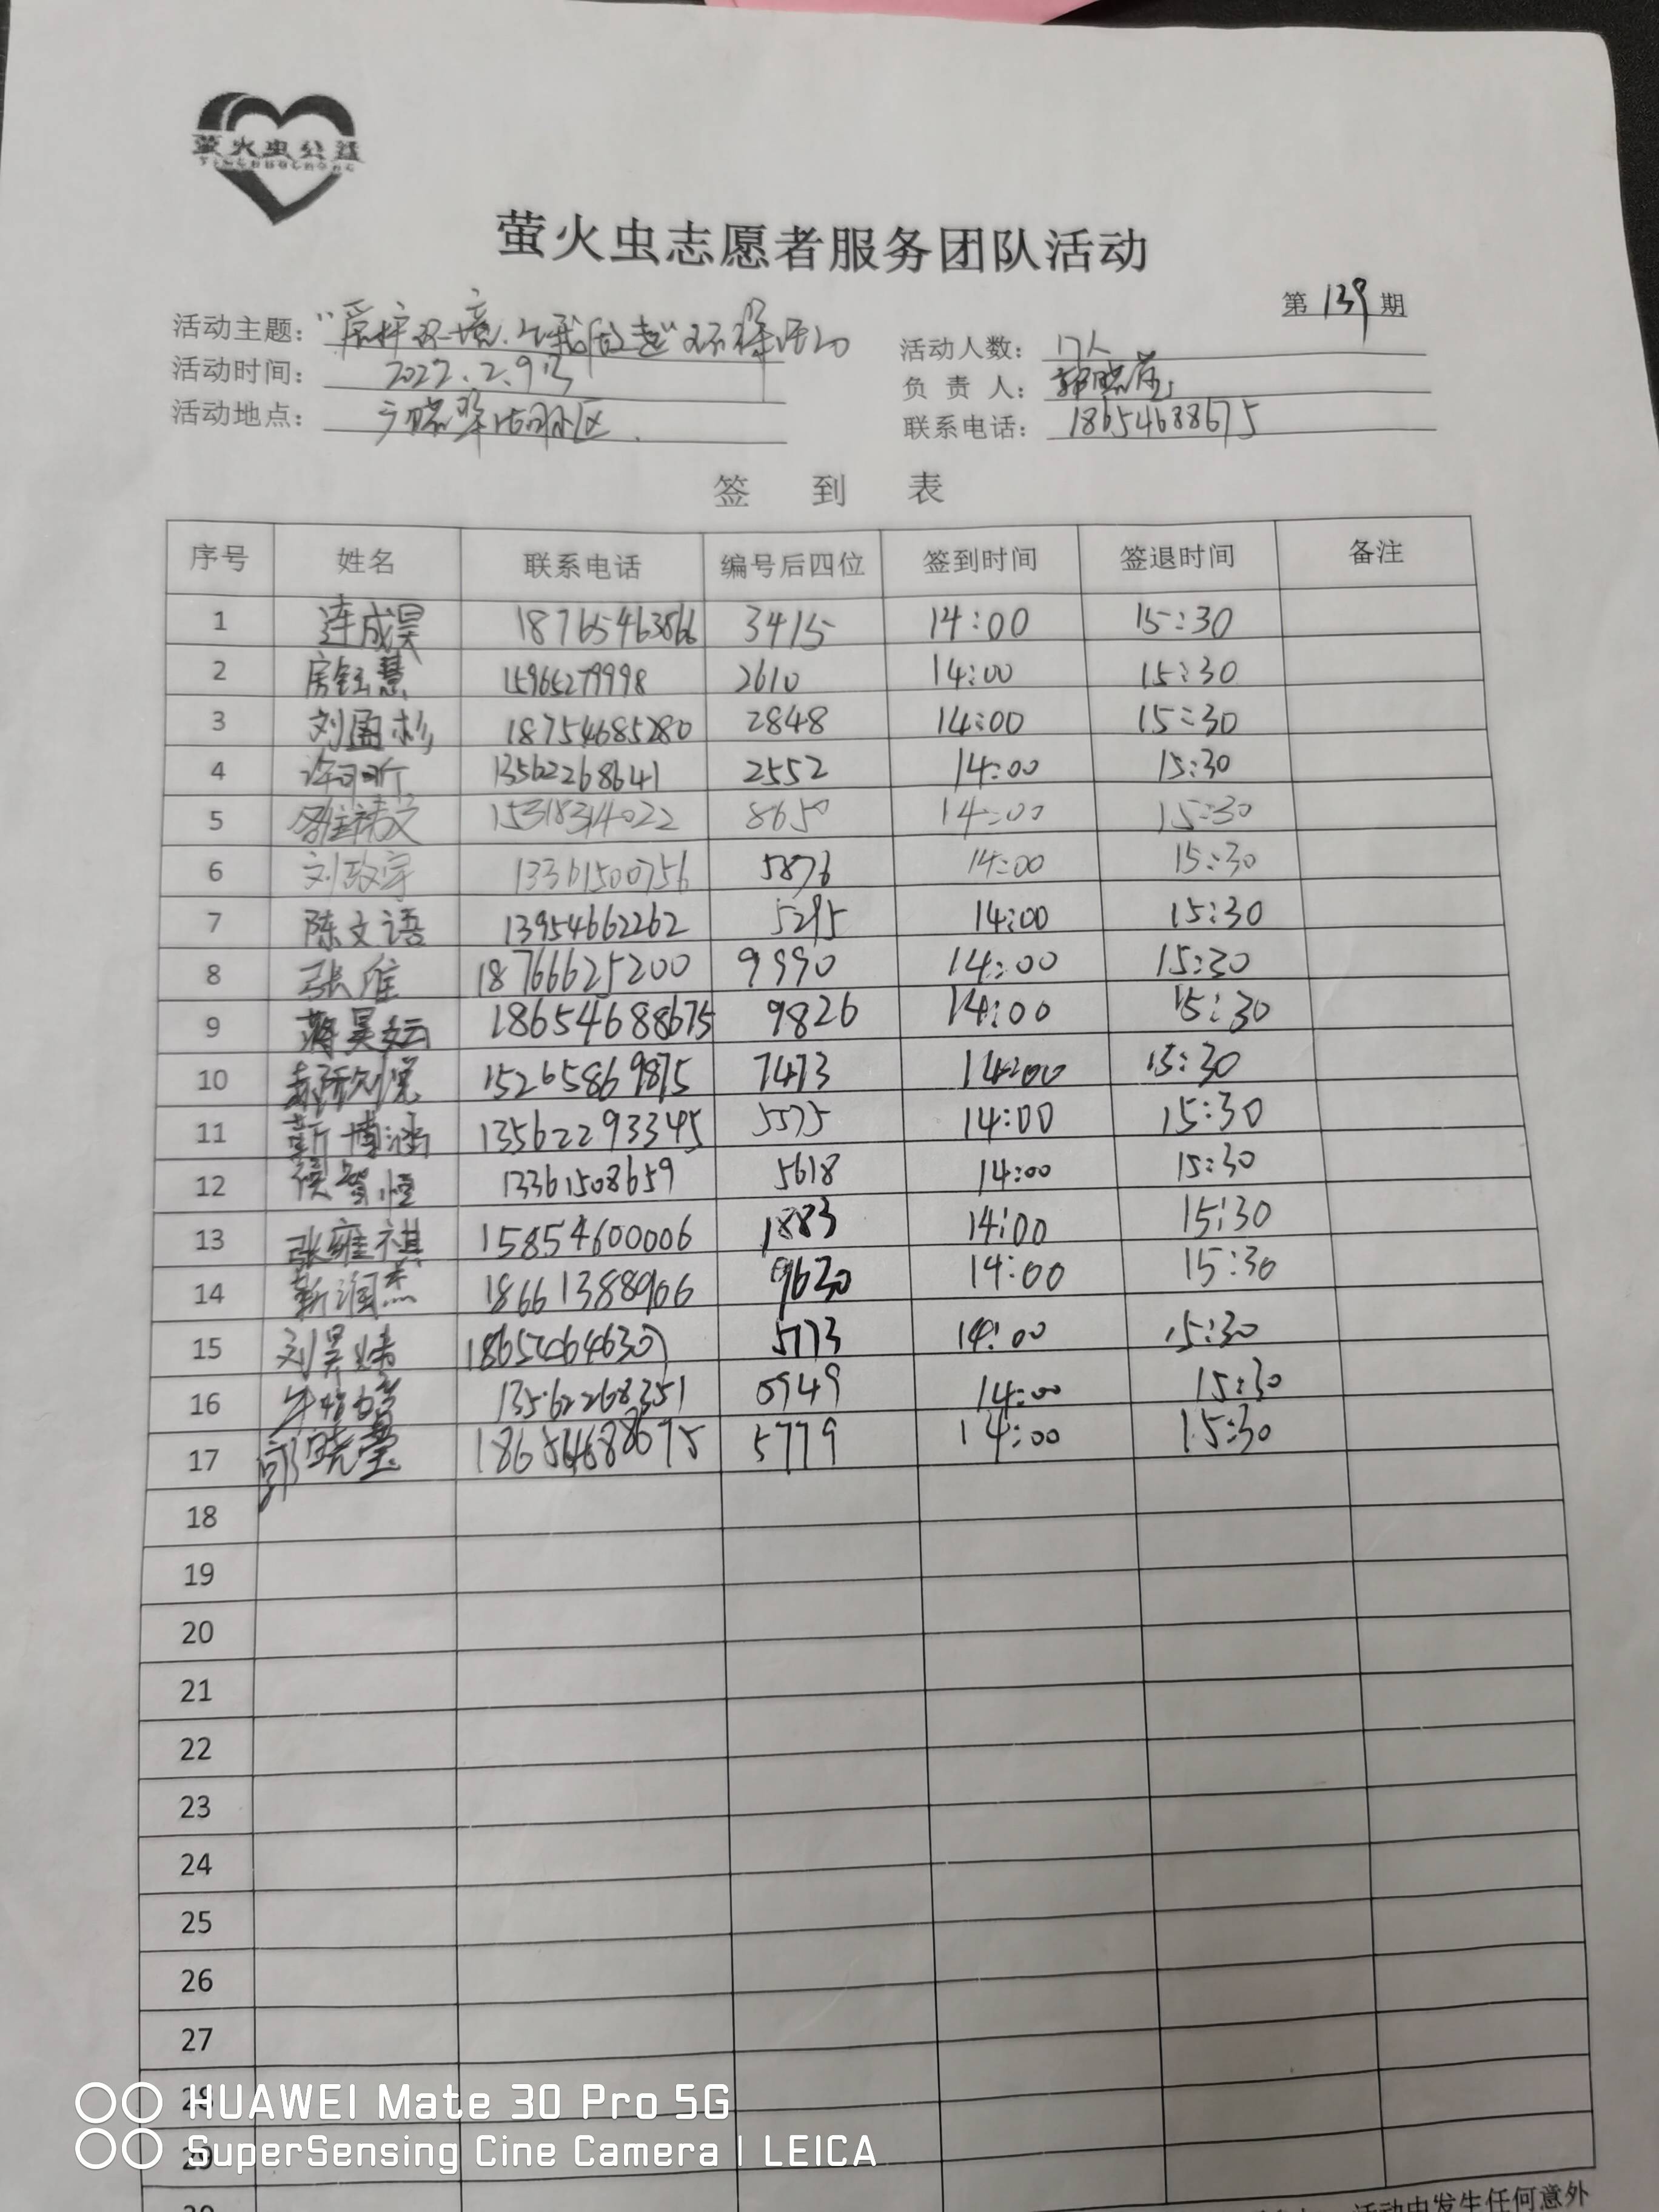 萤火虫公益
YINGHUOCHONG
萤火虫志愿者服务团队活动
第 139 期
活动主题：“爱护环境.从我做起”环保活动
活动人数：17人
活动时间：2022.2.9号
负责人：郭晓莹
活动地点：社区
联系电话：18654688675
签 到 表
序号 姓名 联系电话 编号后四位 签到时间 签退时间 备注
1 连成昊 18765463866 3415 14:00 15:30
2 房钰慧 15965279998 2610 14:00 15:30
3 刘盈杉 18754685280 2848 14:00 15:30
4 许可昕 13562268641 2552 14:00 15:30
5 15318314022 8650 14:00 15:30
6 刘政宇 13361500756 5876 14:00 15:30
7 陈文语 13954662262 5295 14:00 15:30
8 张维 18766625200 9990 14:00 15:30
9 蒋昊妘 18654688675 9826 14:00 15:30
10 15265869875 7473 14:00 15:30
11 靳博涵 13562293345 5575 14:00 15:30
12 侯智恒 13361508659 5618 14:00 15:30
13 张雍祺 15854600006 1883 14:00 15:30
14 靳润杰 18661388966 9630 14:00 15:30
15 刘昊 5773 14:00 15:30
16 13562268351 0949 14:00 15:30
17 郭晓莹 18654688675 5779 14:00 15:30
18
19
20
21
22
23
24
25
26
27
28
29
30
活动中发生任何意外
HUAWEI Mate 30 Pro 5G
SuperSensing Cine Camera | LEICA